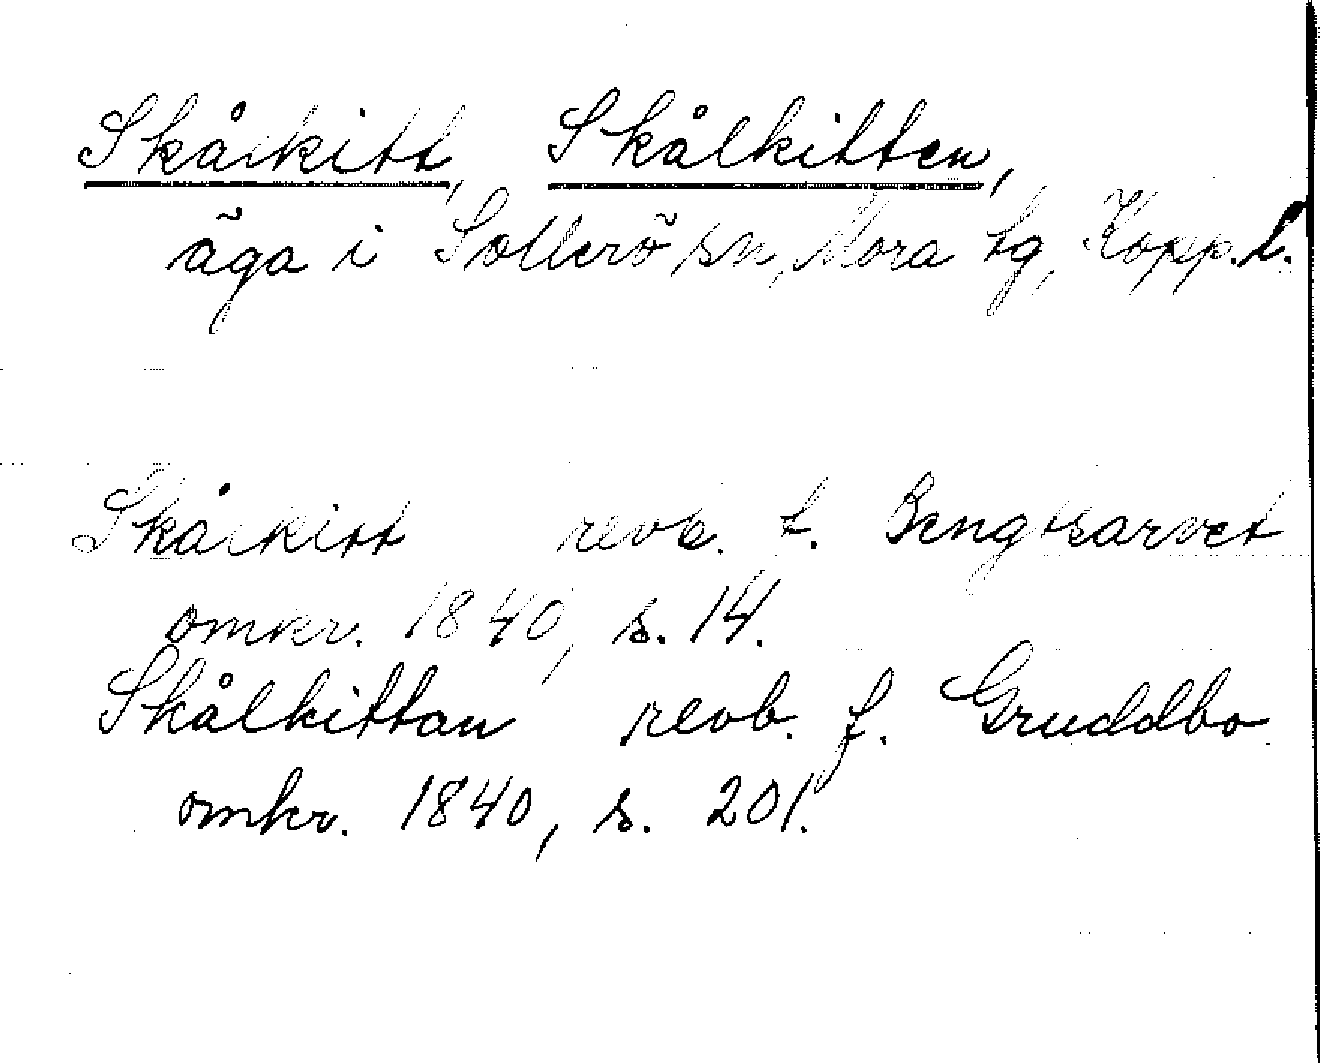 Skålkitt, Skålkitten,
äga i Sollerö sn, Mora tg, Kopp. l.
Skålkitt revb. f. Bengtsarvet
omkr. 1840, s. 14.
Skålkittan revb. f. Gruddbo
omkr. 1840, s. 201.